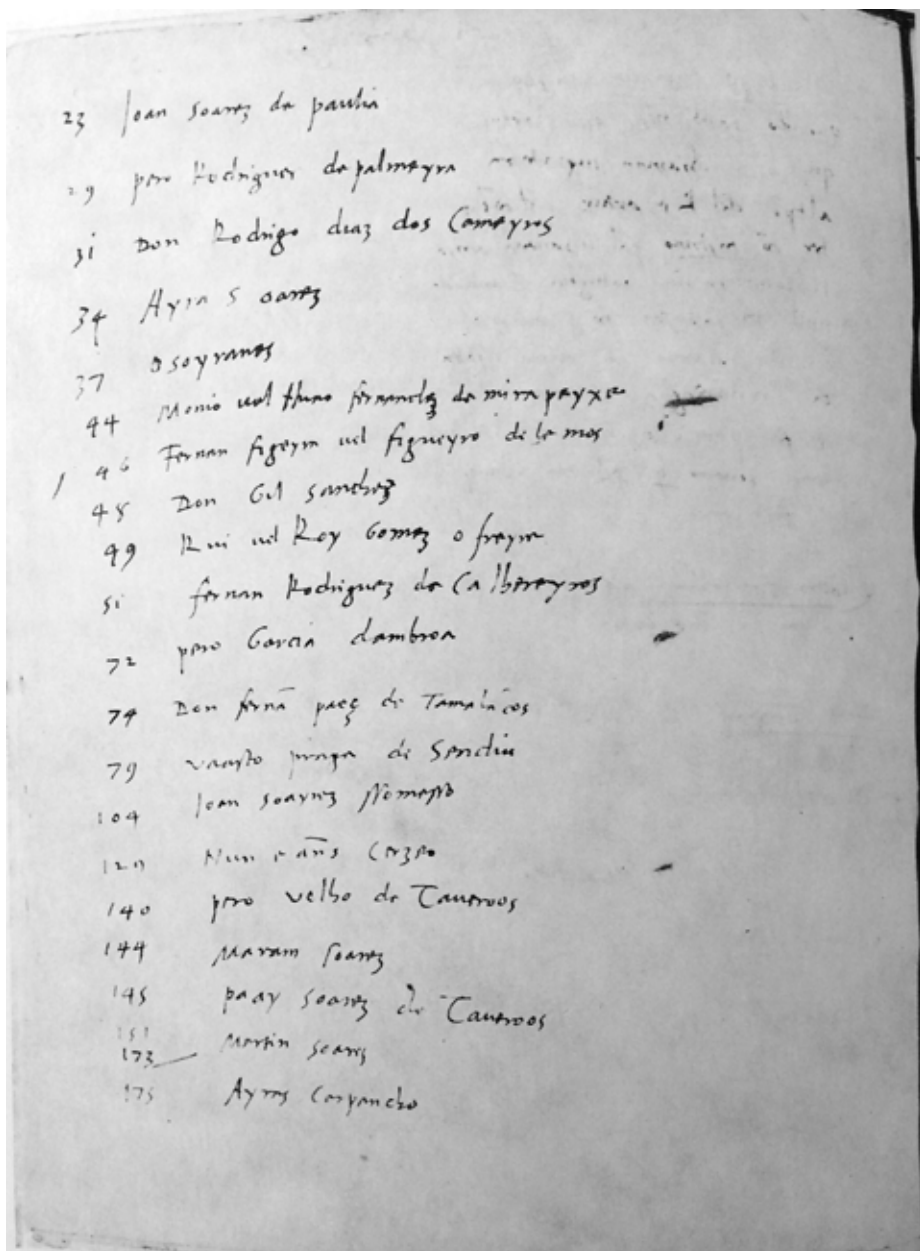 23 Joan Soarez de paulia
29 pero Rodriguez de palmeyra
31 Don Rodrigo diaz dos Cameyros
34 Ayra S oarez
37 Osoyranes
44 Monio vel Nuno fernandez de mirapeyxe
1 46 Fernan figeyra vel figueyro de le mos
48 Don Gil sanchez
49 Rui vel Roy Gomez o freyre
51 fernan Rodriguez de Calhereyros
72 pero Garcia dambroa
74 Don fernã paez de Tamalãcos
79 praga de Sendiu
104 Joan soayrez
120 Nun e añs Cerzeo
140 pero velho de Taueroos
144 soarez
145 paay soarez de Taueroos
151 Martin soarez
173
175 Ayras Carpancho